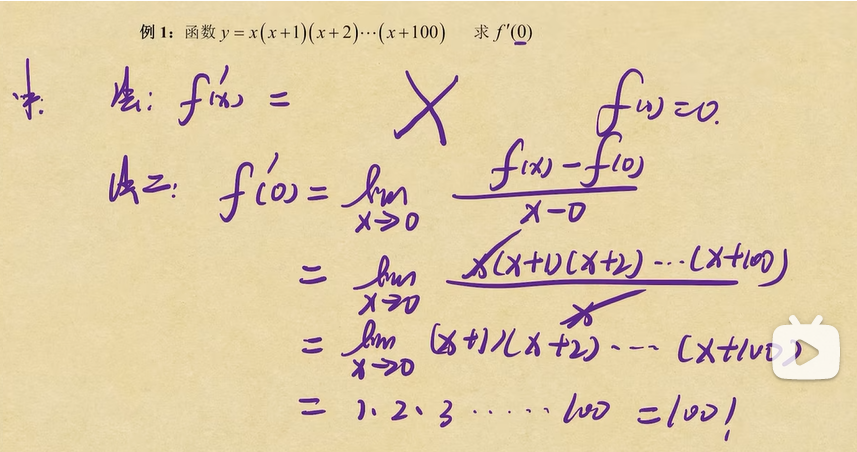 例 1：函数 y = x(x+1)(x+2)⋯(x+100) 求 f′(0)
法一: f′(x) =
f(0)=0.
法二: f′(0) = lim x→0 (f(x) − f(0)) / (x−0)
= lim x→0 x(x+1)(x+2)⋯(x+100) / x
= lim x→0 (x+1)(x+2)⋯⋯(x+100)
= 1·2·3⋯⋯100 = 100!